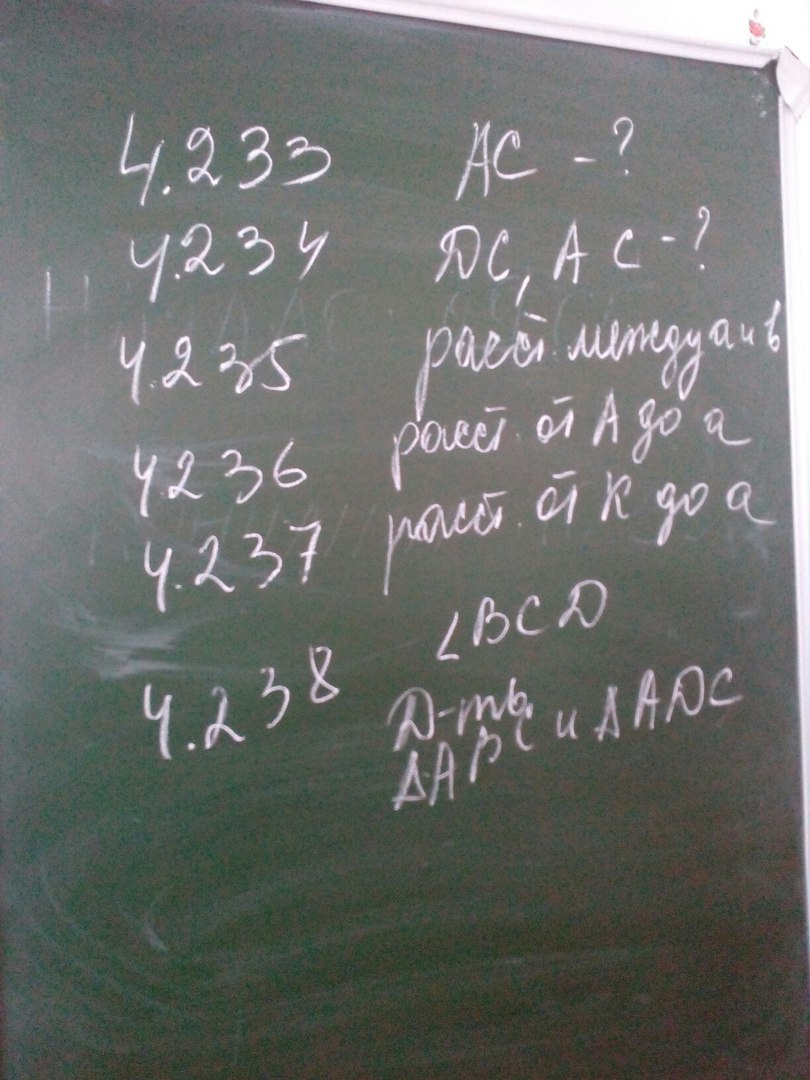 4.233 AC - ?
4.234 DC, AC - ?
4.235 расст. между а и в
4.236 расст. от А до а
4.237 расст. от К до а
∠BCD
4.238 Д-ть
ΔABC и ΔADC